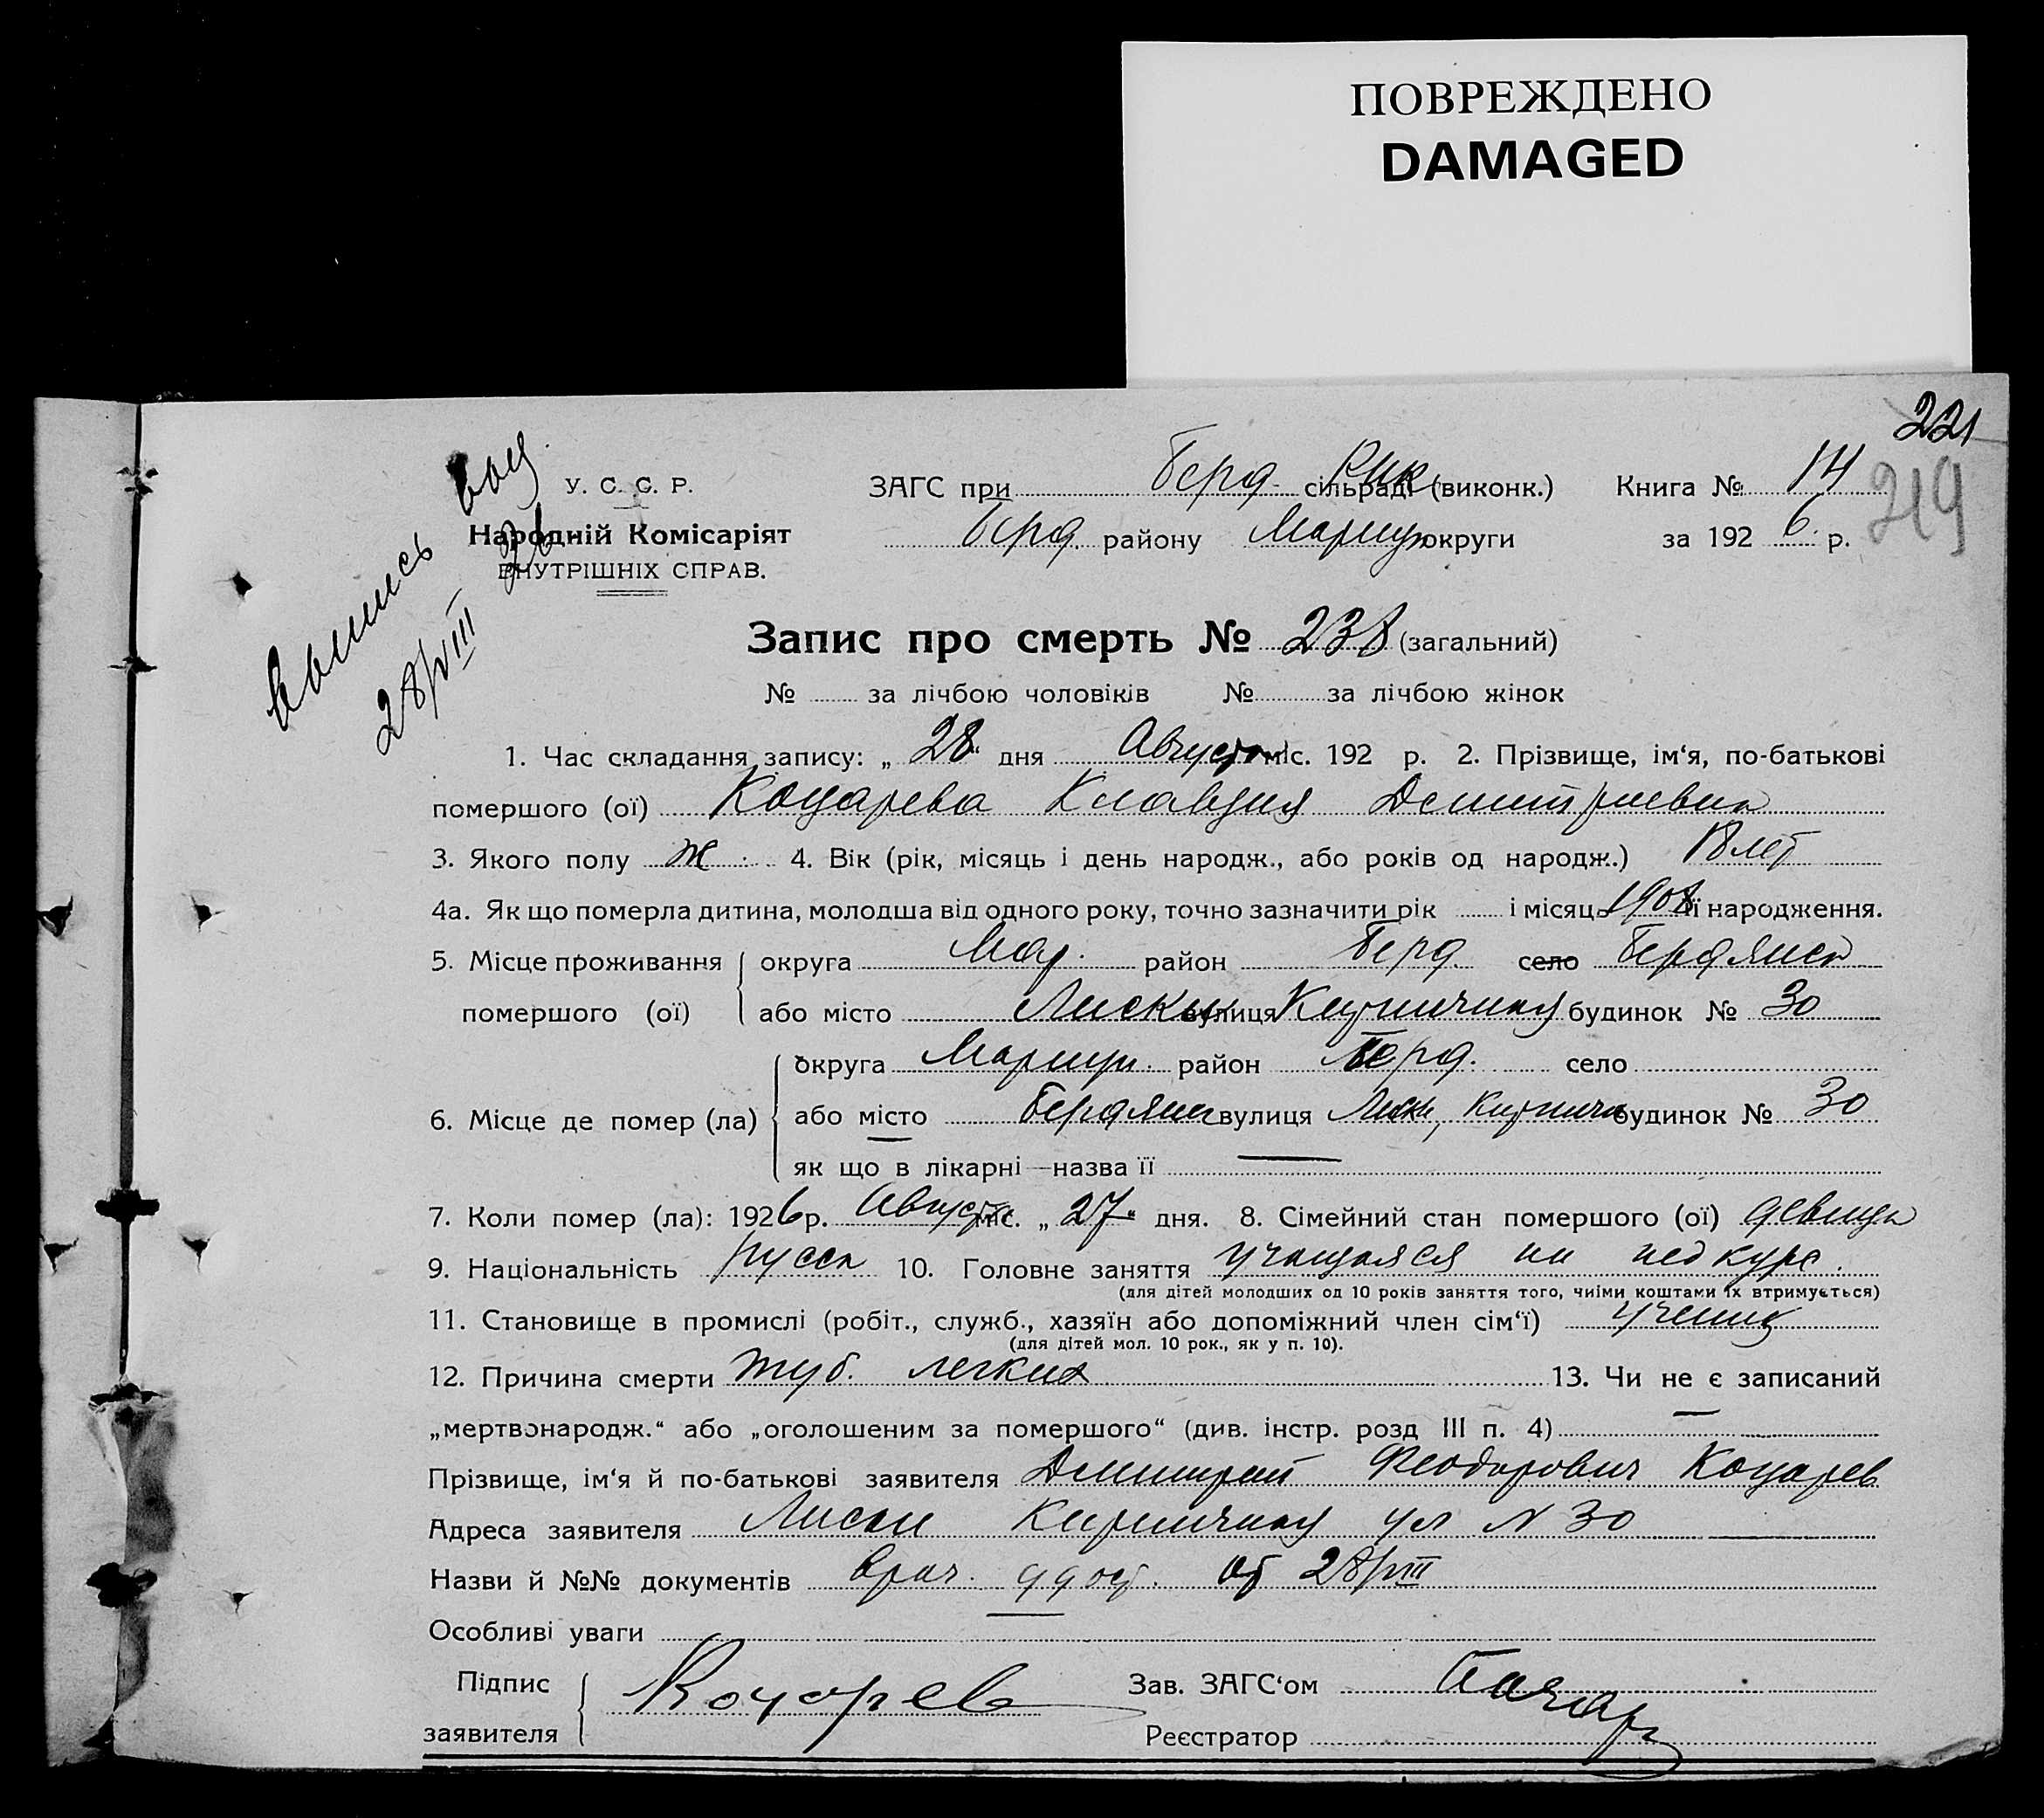 ПОВРЕЖДЕНО
DAMAGED
221
219
выпись выд.
28/VIII 26
У. С. С. Р.
Народній Комісаріят
ВНУТРІШНІХ СПРАВ.
ЗАГС при Берд. Рик сільраді (виконк.) Книга № 14
Берд. району Мариуп округи за 1926 р.
Запис про смерть № 238 (загальний)
№ за лічбою чоловіків № за лічбою жінок
1. Час складання запису: „ 28 “ дня Августа міс. 192 р. 2. Прізвище, ім‘я, по-батькові
помершого (ої) Коцарева Клавдия Демитриевна
3. Якого полу ж 4. Вік (рік, місяць і день народж., або років од народж.) 18 лет
4а. Як що померла дитина, молодша від одного року, точно зазначити рік і місяць 1908 її народження.
5. Місце проживання округа Мар. район Берд. село Бердянск
помершого (ої) або місто Лиски вулиця Кирпичная будинок № 30
округа Мариуп. район Берд. село
6. Місце де помер (ла) або місто Бердянск вулиця Лиски, Кирпичн будинок № 30
як що в лікарні—назва її —
7. Коли помер (ла): 1926 р. Августа міс. „ 27 “ дня. 8. Сімейний стан помершого (ої) девица
9. Національність русск 10. Головне заняття учащаяся на пед курс.
(для дітей молодших од 10 років заняття того, чиїми коштами їх втримується)
11. Становище в промислі (робіт., служб., хазяїн або допоміжний член сім‘ї) учениц
(для дітей мол. 10 рок., як у п. 10).
12. Причина смерти туб. легких 13. Чи не є записаний
„мертвонародж.“ або „оголошеним за помершого“ (див. інстр. розд III п. 4) —
Прізвище, ім‘я й по-батькові заявителя Демитрий Феодорович Коцарев
Адреса заявителя Лиски Кирпичная ул N 30
Назви й №№ документів врач. удост. от 28/VIII
Особливі уваги —
Підпис Коцарев Зав. ЗАГС‘ом
заявителя Реєстратор